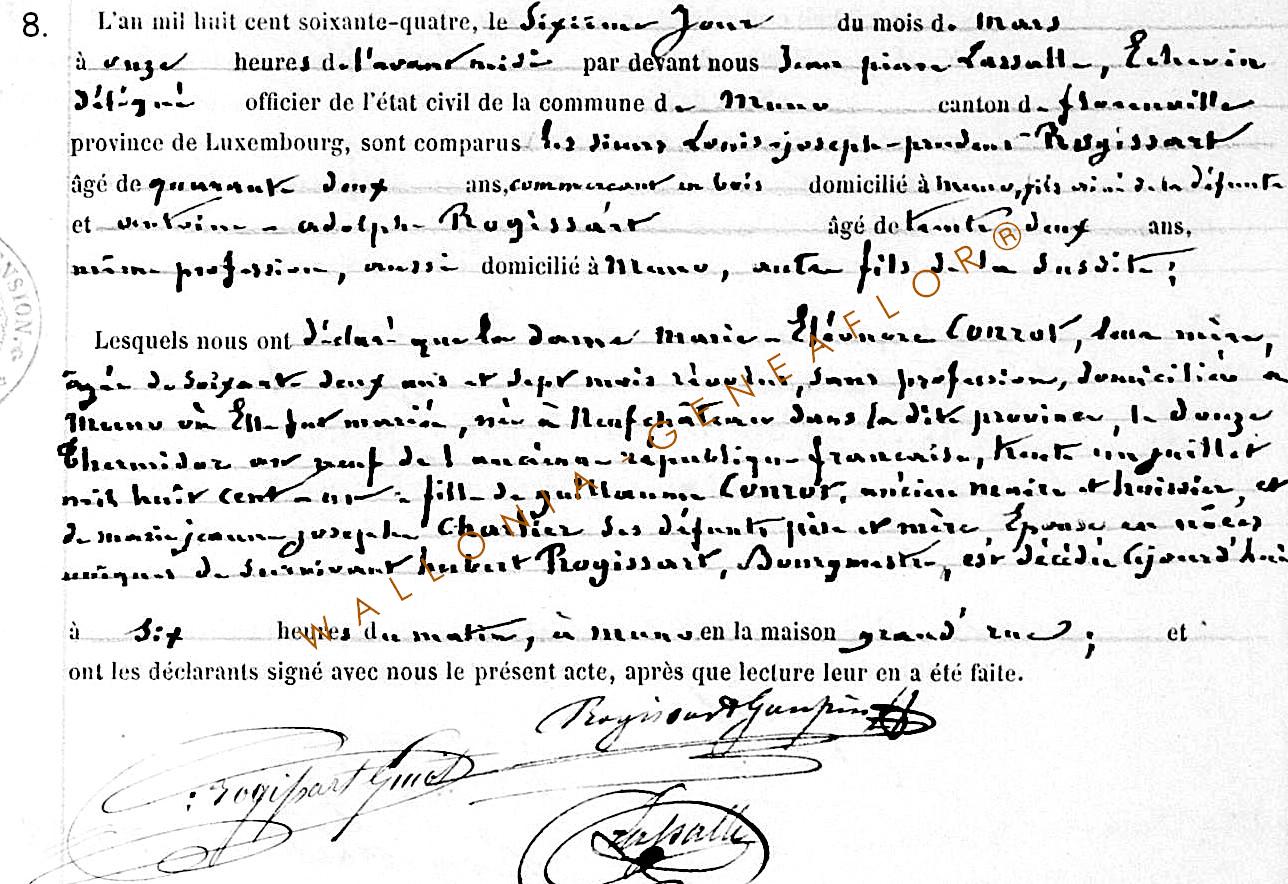 8. L'an mil huit cent soixante-quatre, le Sixième Jour du mois de Mars
à onze heures de l'avant midi par devant nous Jean pierre Lassalle, Echevin
délégué officier de l'état civil de la commune de Muno canton de florenville
province de Luxembourg, sont comparus les sieurs Louis-joseph-prudent Rogissart
âgé de quarante deux ans, commerçant en bois domicilié à Muno, fils ainé de la défunte
et antoine - adolphe Rogissart âgé de trente deux ans,
même profession, aussi domicilié à Muno, autre fils de la susdite;
Lesquels nous ont déclaré que la dame Marie - Eléonore Conrot, leur mère,
âgée de soixante deux ans et sept mois révolus, sans profession, domiciliée à
Muno où Elle fut mariée, née à Neufchâteau dans la dite province, le douze
Thermidor an neuf de l'ancienne république française, trente un juillet
mil huit cent - un - fille de guillaume Conrot, ancien maire et huissier, et
de marie jeanne josephe Charlier ses défunts père et mère Epouse en nôces
uniques de survivant hubert Rogissart, Bourgmestre, est décédée cejourd'hui
à six heures du matin, à muno en la maison grand' rue; et
ont les déclarants signé avec nous le présent acte, après que lecture leur en a été faite.
Rogissart
Rogissart Guiot
Lassalle
WALLONIA - GENEAFLOR®
NSION.